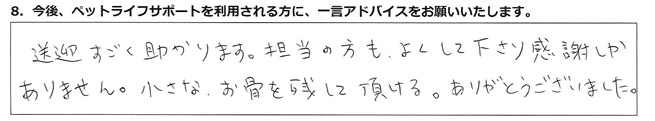 8. 今後、ペットライフサポートを利用される方に、一言アドバイスをお願いいたします。
送迎すごく助かります。担当の方も、よくして下さり感謝しか
ありません。小さな、お骨を残して頂ける。ありがとうございました。